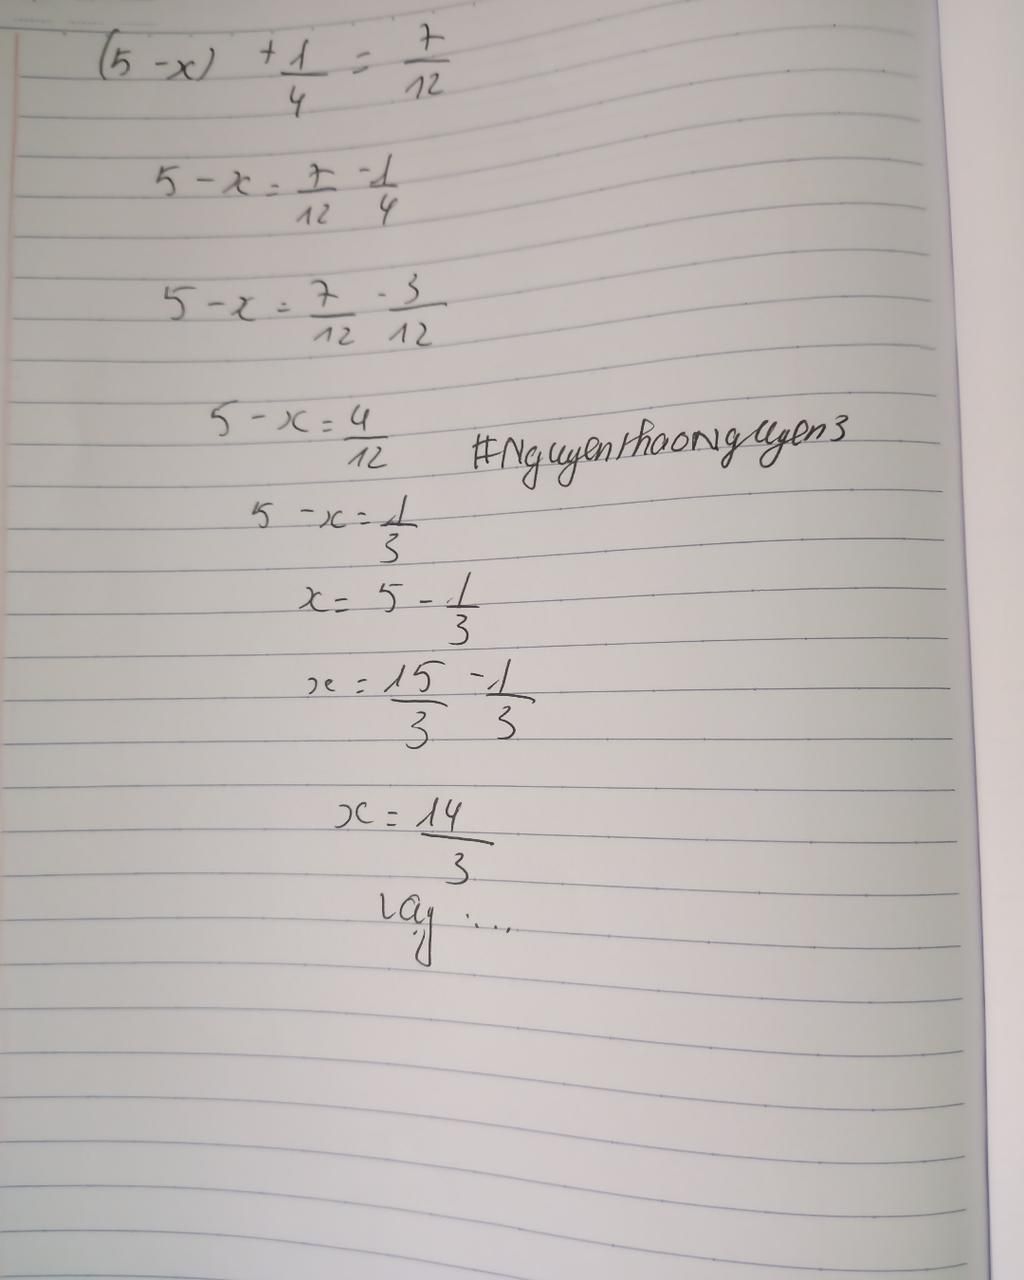 (5 - x) + 1/4 = 7/12
5 - x = 7/12 - 1/4
5 - x = 7/12 - 3/12
5 - x = 4/12
#NguyenThaoNguyen3
5 - x = 1/3
x = 5 - 1/3
x = 15/3 - 1/3
x = 14/3
Vay ....